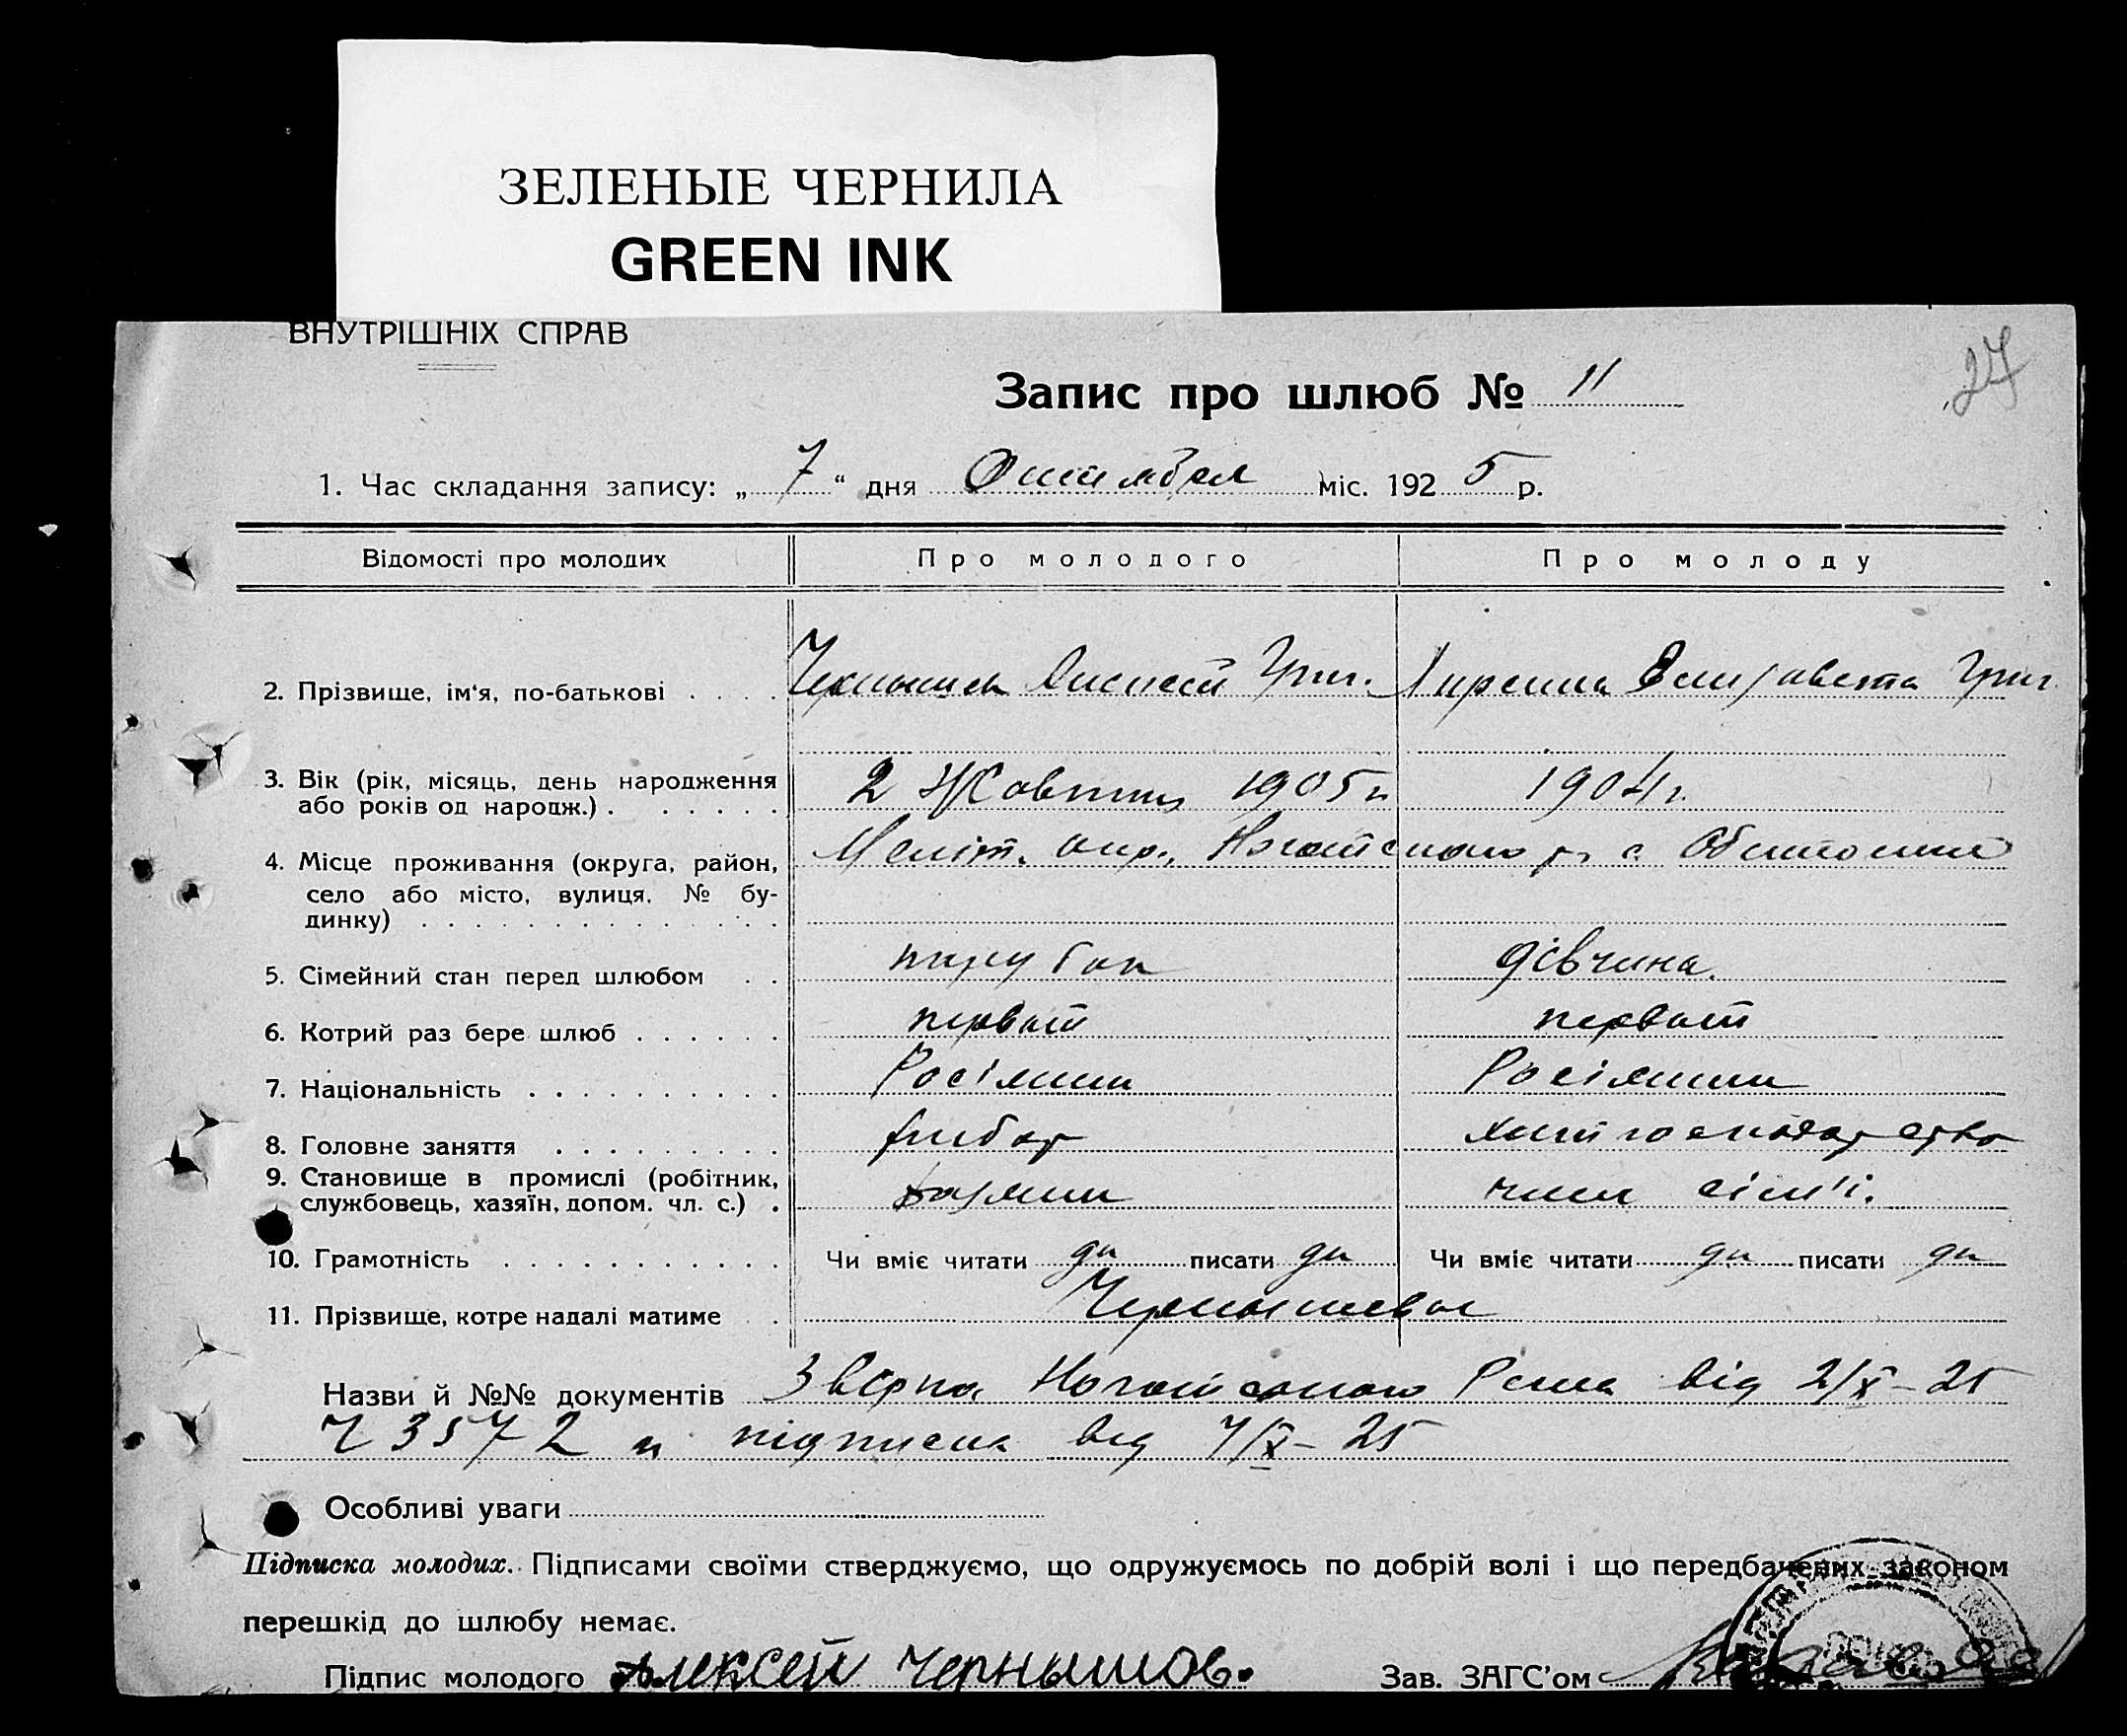 ЗЕЛЕНЫЕ ЧЕРНИЛА
GREEN INK
ВНУТРІШНІХ СПРАВ
27
Запис про шлюб № 11
1. Час складання запису: „ 7 “ дня Октября міс. 1925 р.
Відомості про молодих Про молодого Про молоду
2. Прізвище, ім‘я, по-батькові Алексей Григ. Елизавета Григ
3. Вік (рік, місяць, день народження 2 Жовтня 1905 г. 1904 г.
або років од народж.)
4. Місце проживання (округа, район, Меліт. окр., Ногайського р. с. Обиточне
село або місто, вулиця, № бу-
динку)
5. Сімейний стан перед шлюбом парубок дівчина.
6. Котрий раз бере шлюб первый первый
7. Національність Росіяни Росіянин
8. Головне заняття хлібор господарство
9. Становище в промислі (робітник, хозяин член сім'ї.
службовець, хазяїн, допом. чл. с.)
10. Грамотність Чи вміє читати да писати да Чи вміє читати да писати да
11. Прізвище, котре надалі матиме Чернышевы
Назви й №№ документів Ногайського від 2/X – 25
Ч 3572 и підписка від 7/X – 25
Особливі уваги
Підписка молодих. Підписами своїми стверджуємо, що одружуємось по добрій волі і що передбачених законом
перешкід до шлюбу немає.
Підпис молодого Алексей Чернышов. Зав. ЗАГС’ом